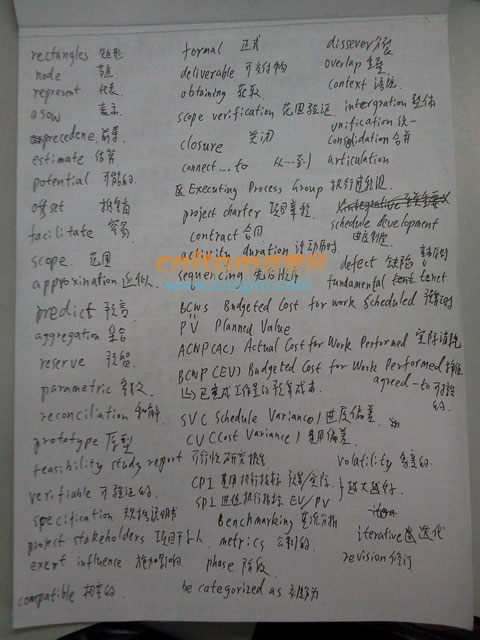 rectangles 矩形
node 节点
represent 代表
asow 表示
precedene 前导
estimate 估算
potential 可能的
offset 抵销
facilitate 容易
scope 范围
approxination 近似
predict 预言
aggregation 集合
reserve 预留
parametric 参数
reconciliation 和解
prototype 原型
feasibility study report 可行性研究报告
verifiable 可验证的
specification 规格说明书
project stakeholders 项目干系人
exert influence 施加影响
compatible 相容的
formal 正式
deliverable 可交付物
obtaining 获取
scope verification 范围验证
closure 关闭
connect...to 从...到
Executing Process Group 执行过程组
project charter 项目章程
contract 合同
activity duration 活动历时
sequencing 先后顺序
BCWS Budgeted Cost for work Scheduled 预算
PV Planned Value
ACWP(AC) Actual Cost for Work Performed 实际
BCWP (EV) Budgeted Cost for Work Performed
已完成工作量的预算成本
SV (Schedule Variance) 进度偏差
CV (Cost Variance) 费用偏差
CPI 费用执行指标
SPI 进度执行指标 EV/PV
越大越好
Benchmarking
metrics
phase 阶段
be categorized as
dissever 分裂
overlap 重叠
context 语境
intergration 整体
unification 统一
Consolidation 合并
articulation
schedule development
进度制定
defect 缺陷
fundamental tenet
agreed-to
volatility 易变的
iterative 迭代
revision 修订
cnitpm